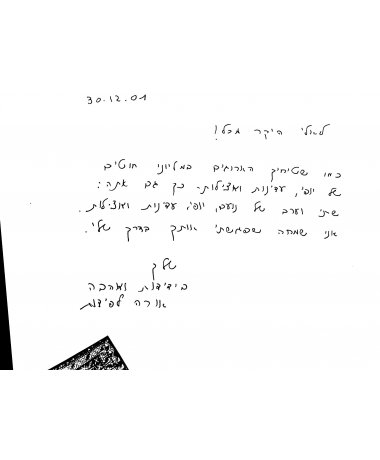 30.12.01
לאלי היקר מכל!
כמו שטיחיך הארוגים במליוני חוטים
של יופי, עדינות ואצילות - כך גם אתה:
שתי וערב של נועם, יופי, עדינות ואצילות.
אני שמחה שפגשתי אותך בדרך שלי.
שלך
בידידות ואהבה
אורה לפידות